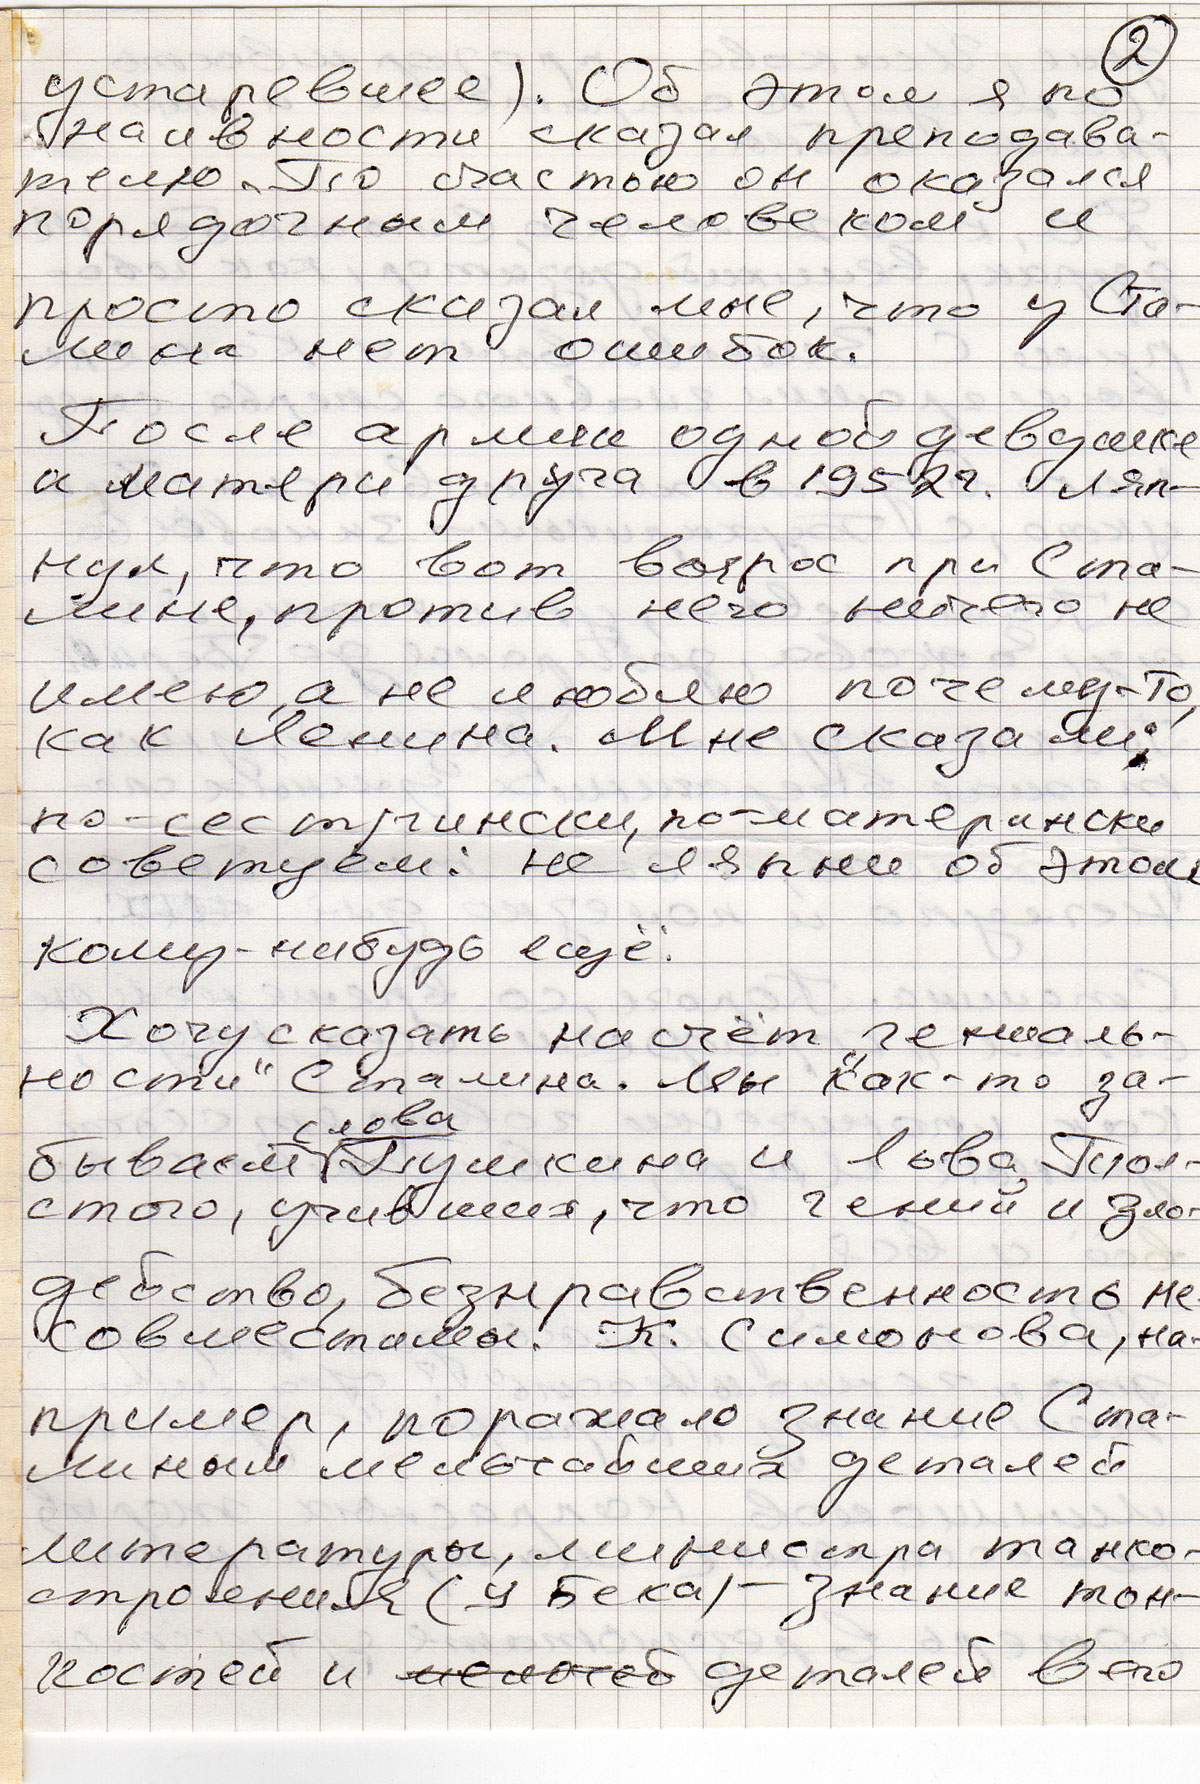 2
устаревшее). Об этом я по
наивности сказал преподава-
телю. По счастью он оказался
порядочным человеком и
просто сказал мне, что у Ста-
лина нет ошибок.
После армии одной девушке
и матери друга в 1952 г. ляп-
нул, что вот вырос при Ста-
лине, против него ничего не
имею, а не люблю почему-то,
как Ленина. Мне сказали:
по-сестрински, по-матерински
советуем: не ляпни об этом
кому-нибудь ещё.
Хочу сказать насчёт „гениаль-
ности" Сталина. Мы как-то за-
слова
бываем Пушкина и Льва Тол-
стого, учивших, что гений и зло-
действо, безнравственность не-
совместимы. К. Симонова, на-
пример, поражало знание Ста-
линым мельчайших деталей
литературы, министра танко-
строения (у Бека) – знание тон-
костей и мелочей деталей в его